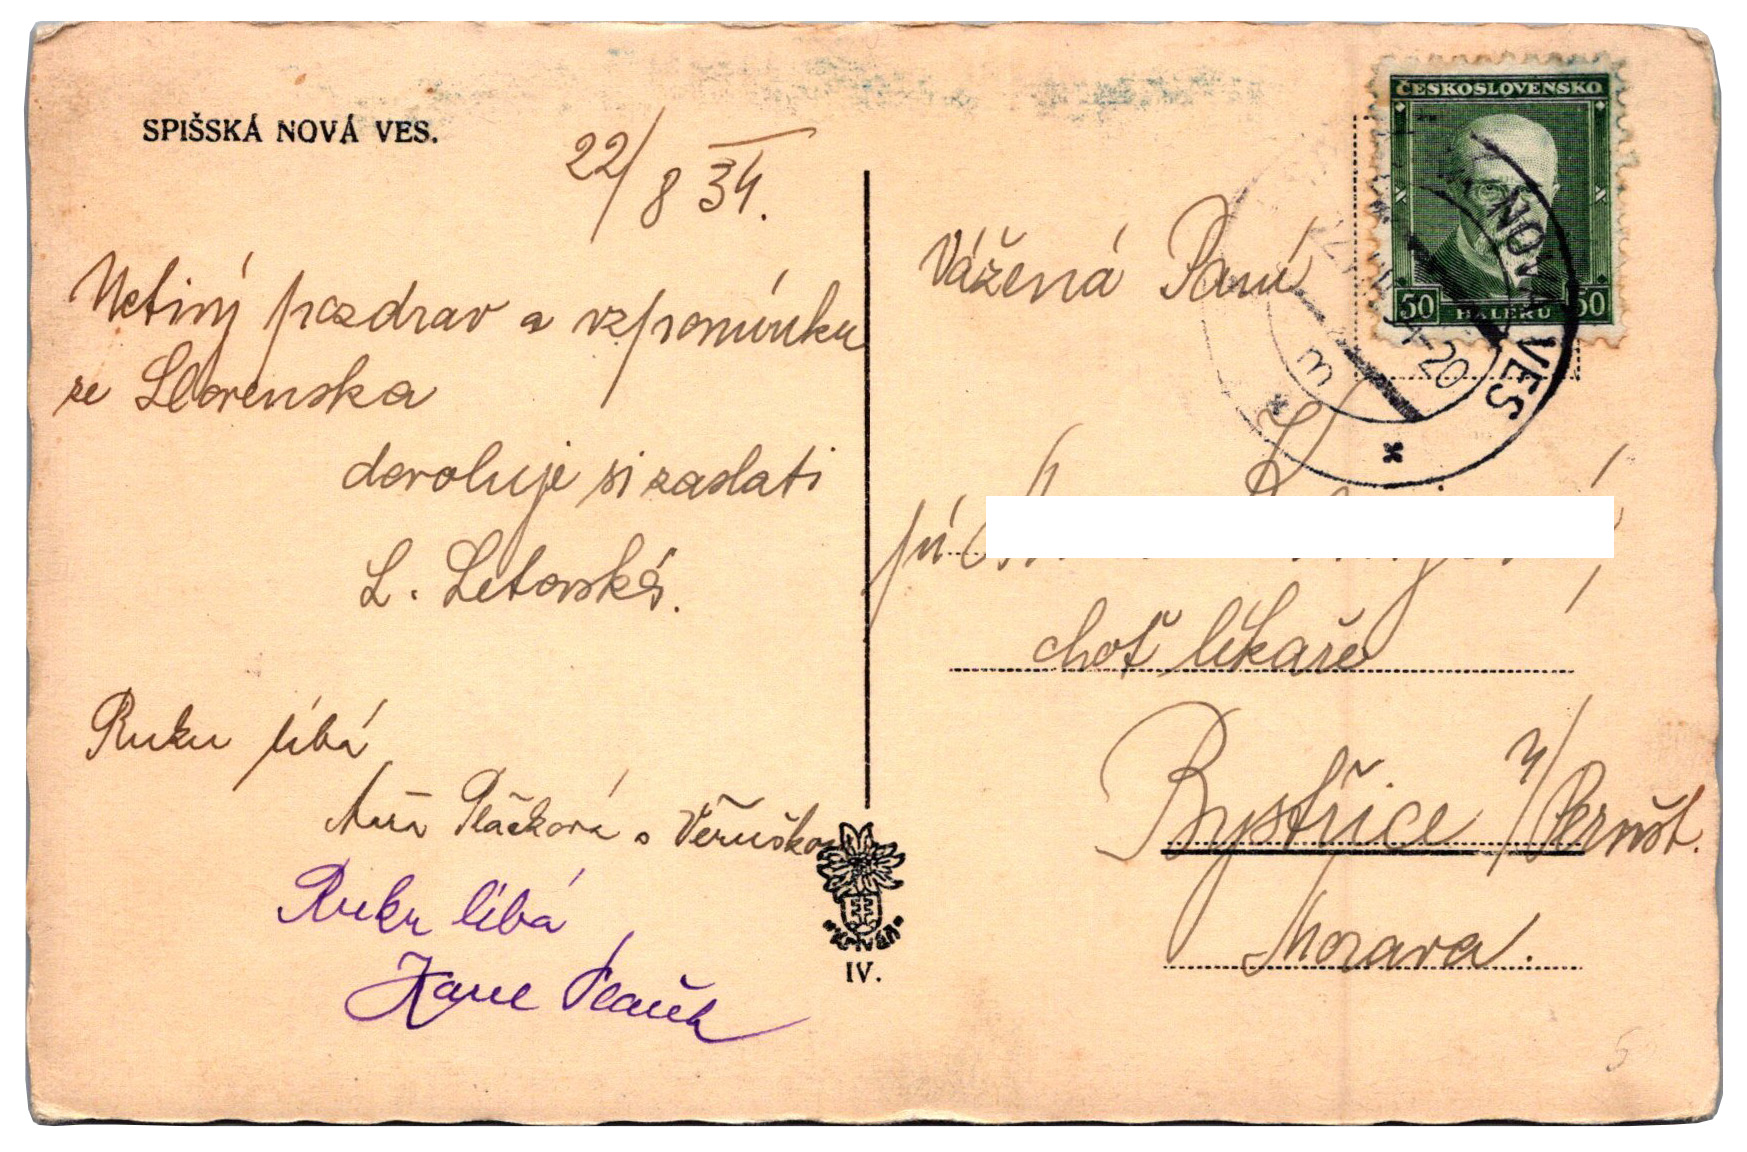 SPIŠSKÁ NOVÁ VES.
22/8 34.
Uctivý pozdrav a vzpomínku
ze Slovenska
dovoluje si zaslati
L. Letovská.
Ruku líbá
Plačková s Věruškou
Ruku líbá
Karel
"KRIVÁŇ"
IV.
ČESKOSLOVENSKO
50 HALÉŘŮ 50
NOVÁ VES
Vážená Paní
pí
choť lékaře
Bystřice n/Pernšt.
Morava.
5